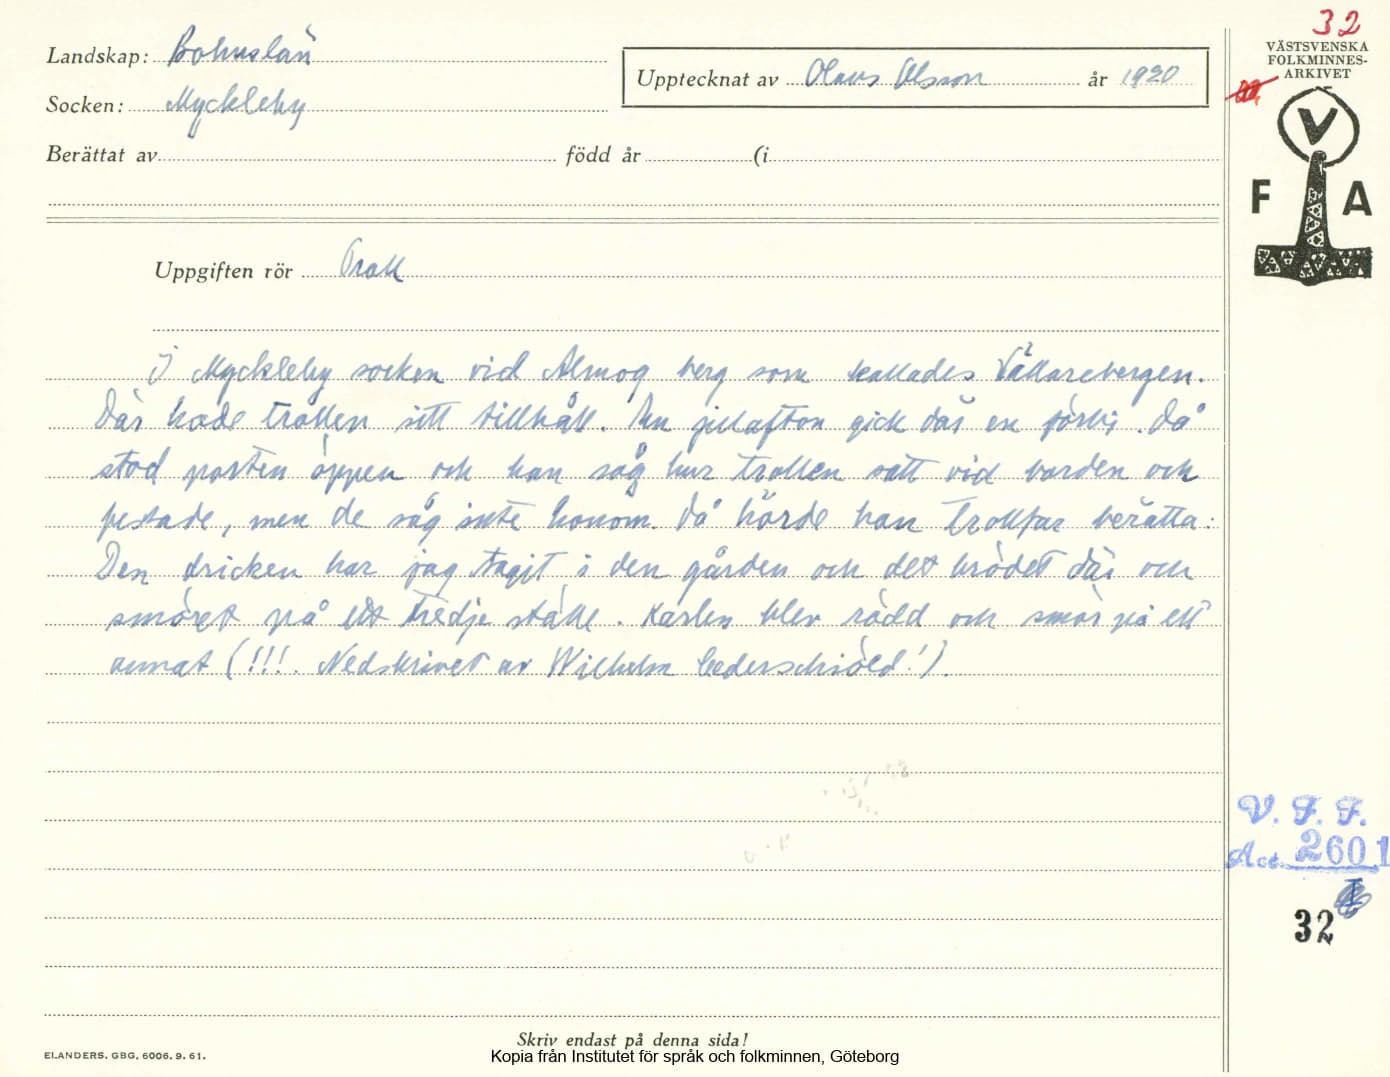 32
VÄSTSVENSKA
FOLKMINNES-
ARKIVET
V
F A
Landskap: Bohuslän
Upptecknat av Olavs Olsson år 1920
Socken: Myckleby
Berättat av född år (i
Uppgiften rör Troll
I Myckleby socken vid Almög berg som kallades Vällarebergen.
Där hade trollen sitt tillhåll. En julafton gick där en förbi. Då
stod porten öppen och han såg hur trollen satt vid borden och
festade, men de såg inte honom. Då hörde han trollfar berätta:
Den dricken har jag tagit i den gården och det brödet där och
smöret på ett tredje ställe. Karlen blev rädd och smör på ett
annat (!!!. Nedskrivet av Wilhelm Cederschiöld!).
V. F. F.
Acc. 2601
I
32
Skriv endast på denna sida!
ELANDERS. GBG. 6006. 9. 61.
Kopia från Institutet för språk och folkminnen, Göteborg